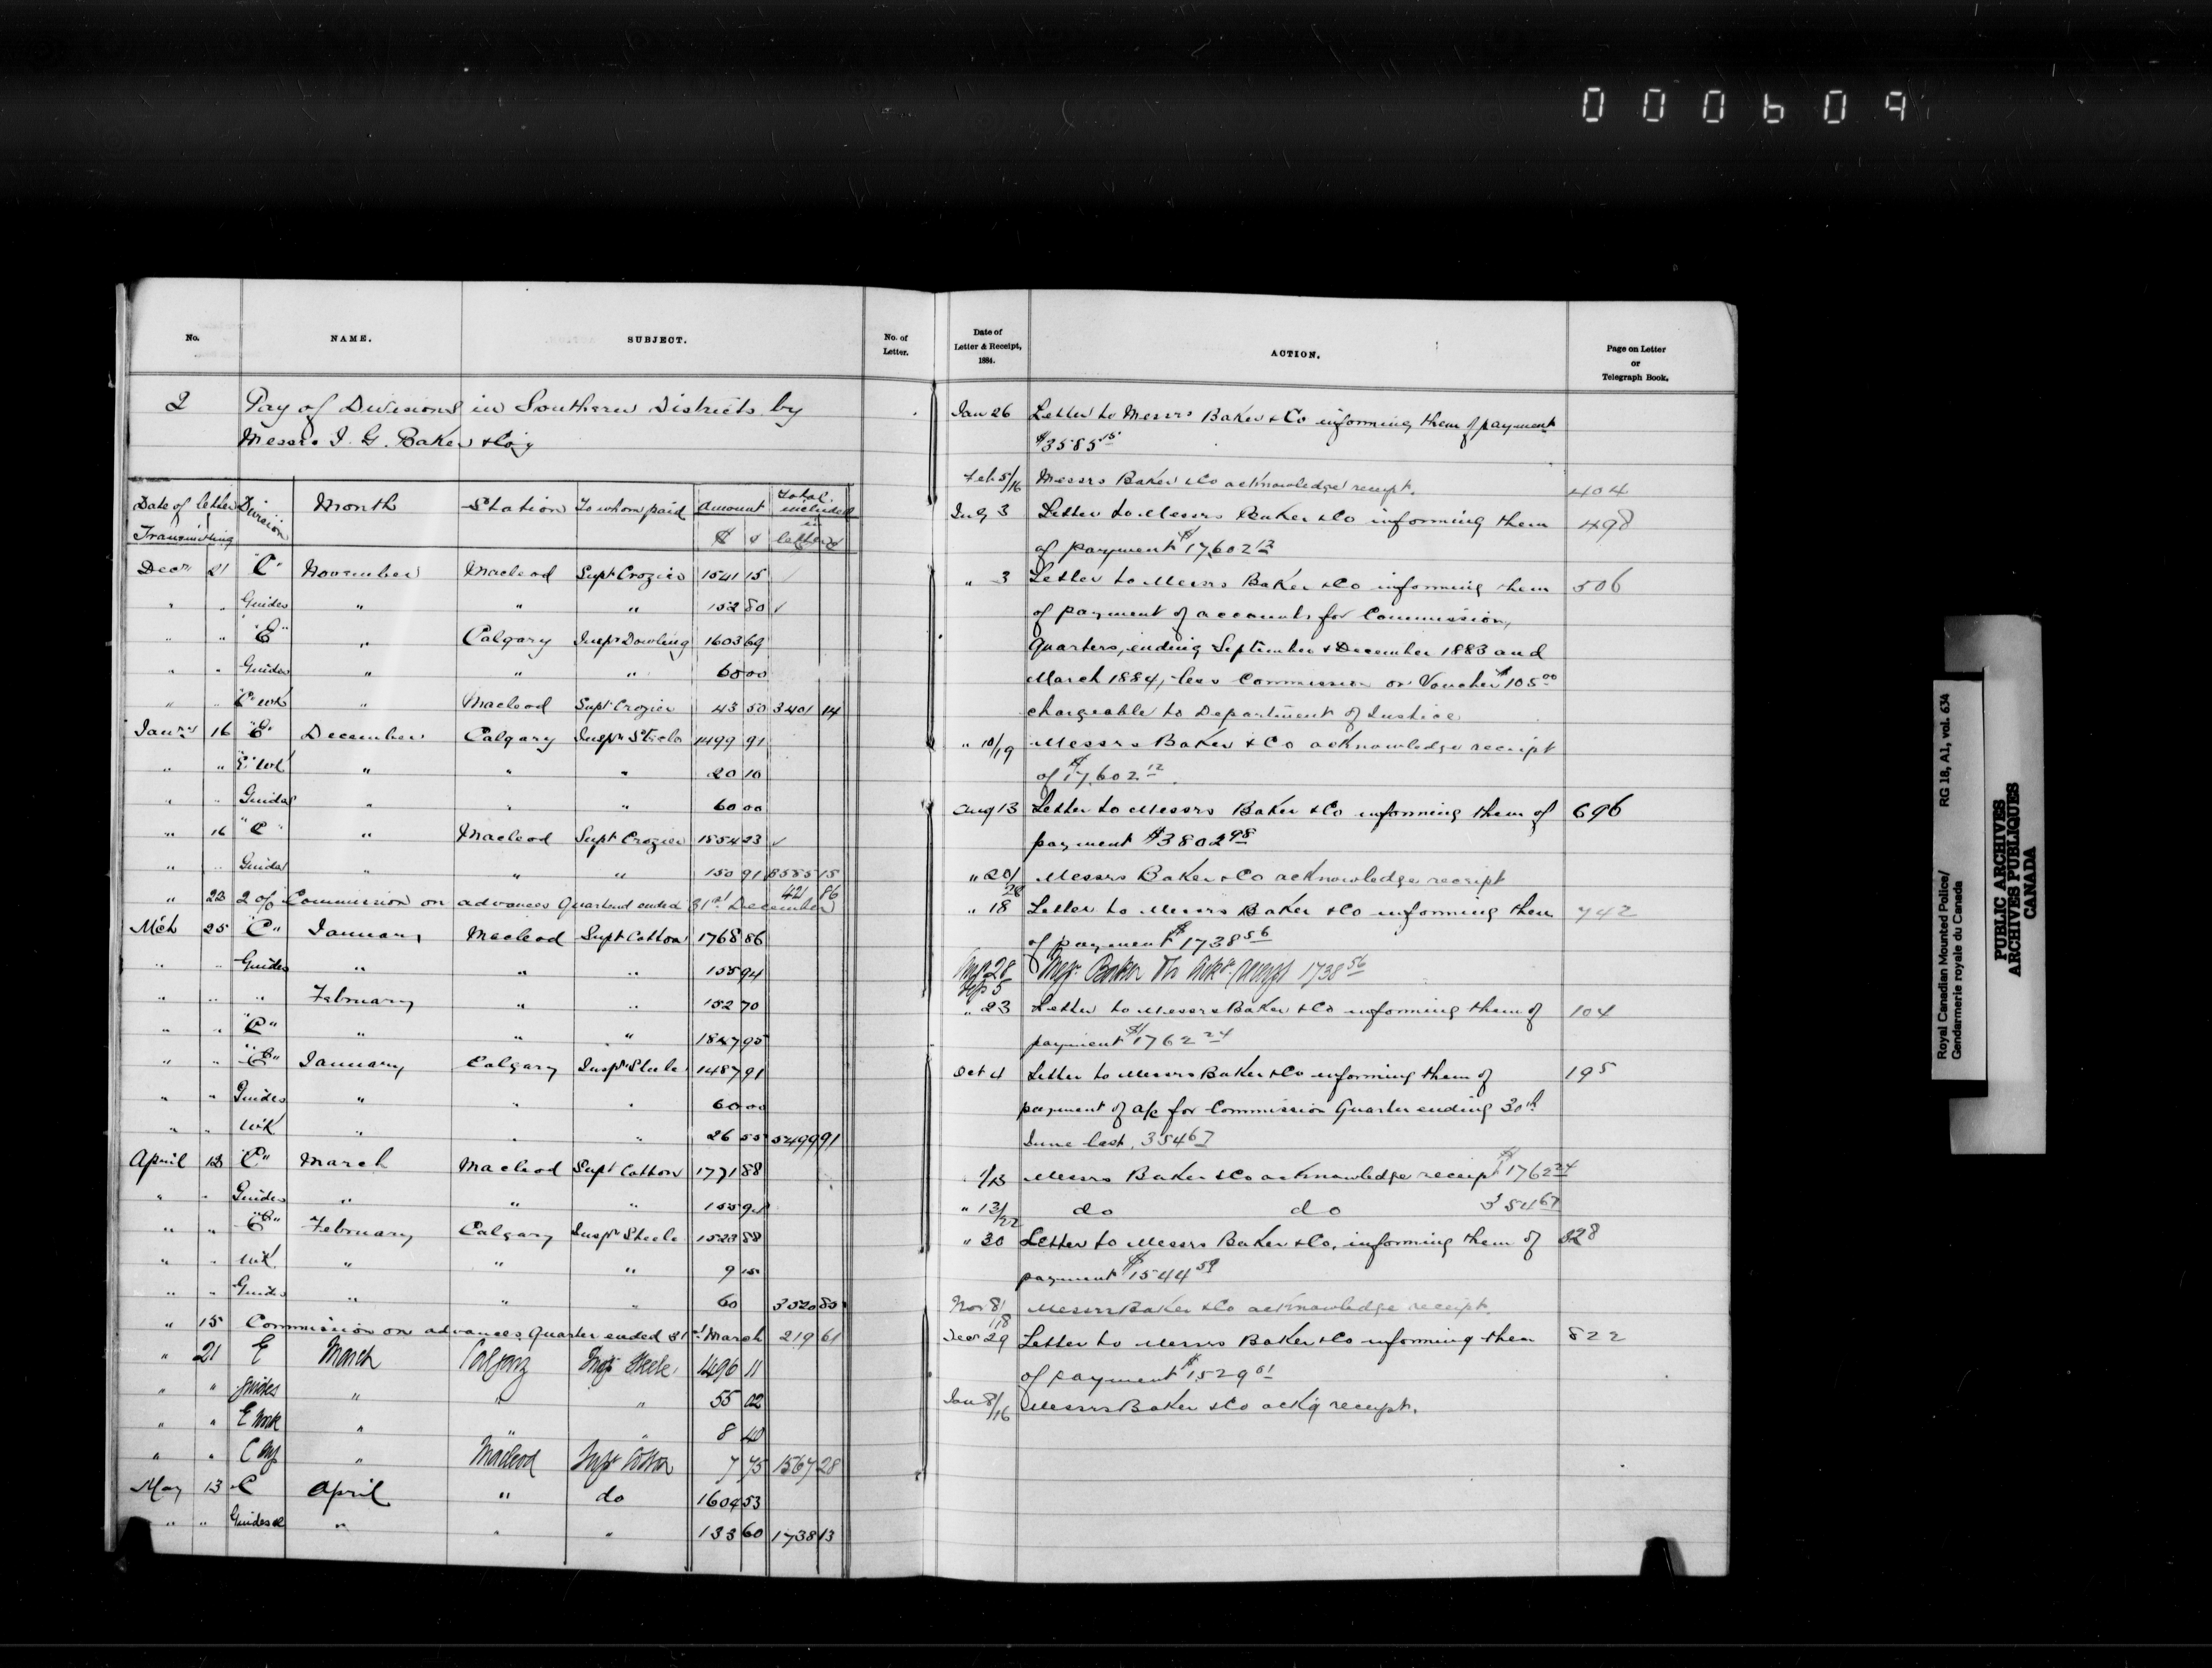 000609
No. NAME. SUBJECT. No. of Letter.
2 Pay of Divisions in Southern Districts by
Messrs I. G. Baker & Co'y
Date of letter Transmitting Division Month Station To whom paid Amount $ ¢ Total included in letter
Decr 21 "C" November Macleod Supt Crozier 1541 15 ✓
" " Guides " " " 152 80 ✓
" " "E" " Calgary Inspr Dowling 1603 69
" " Guides " " " 60 00
" " "C" wk " Macleod Supt Crozier 43 50 3401 14
Jany 16 "E" December Calgary Inspr Steele 1499 91
" " "E" wk " " " 20 10
" " Guides " " " 60 00
" 16 "C" " Macleod Supt Crozier 1854 23 ✓
" " Guides " " " 150 91 3585 15
" 23 2 % Commission on advances Quarter ended 31st December 421 86
Mch 25 "C" January Macleod Supt Cotton 1768 86
" " Guides " " " 155 94
" " " February " " 152 70
" " "C" " " " 1847 95
" " "E" January Calgary Inspr Steele 1487 91
" " Guides " " " 60 00
" " wk " " " 26 55 5499 91
April 12 "C" March Macleod Supt Cotton 1771 88
" " Guides " " " 155 94
" " "E" February Calgary Inspr Steele 1523 88
" " wk " " " 9 15
" " Guides " " " 60 3520 85
" 15 Commission on advances Quarter ended 31st March 219 61
" 21 E March Calgary Insp Steele 1496 11
" " Guides " " " 55 02
" " E Work " " " 8 40
" " C " Macleod Supt Cotton 7 75 1567 28
May 13 C April " do 1604 53
" " Guides " " " 133 60 1738 13
Date of Letter & Receipt, 1884. ACTION. Page on Letter or Telegraph Book.
Jan 26 Letter to Messrs Baker & Co informing them of payment
$3585 15
Feb 5/16 Messrs Baker & Co acknowledge receipt. 404
July 3 Letter to Messrs Baker & Co informing them 498
of payment $17,602 12
" 3 Letter to Messrs Baker & Co informing them 506
of payment of accounts for Commission,
Quarters, ending September & December 1883 and
March 1884, less Commission on Voucher $105 00
chargeable to Department of Justice
" 10/19 Messrs Baker & Co acknowledge receipt
of $17,602 12.
Aug 13 Letter to Messrs Baker & Co informing them of 696
payment $3802 98
" 20/28 Messrs Baker & Co acknowledge receipt
" 18 Letter to Messrs Baker & Co informing them 742
of payment $1738 56
Aug 28 Sep 5 Messr Baker 1738 56
" 23 Letter to Messrs Baker & Co informing them of 104
payment $1762 24
Oct 4 Letter to Messrs Baker & Co informing them of 195
payment of a/c for Commission Quarter ending 30th
June last. 354 67
1/13 Messrs Baker & Co acknowledge receipt $1762 24
" 13/22 do do 354 67
" 30 Letter to Messrs Baker & Co, informing them of 328
payment $1544 59
Nov 8/18 Messrs Baker & Co acknowledge receipt.
Decr 29 Letter to Messrs Baker & Co informing them 822
of payment $1529 01
Jan 8/16 Messrs Baker & Co ackg receipt.
Royal Canadian Mounted Police/ RG 18, A1, vol. 634
Gendarmerie royale du Canada
PUBLIC ARCHIVES
ARCHIVES PUBLIQUES
CANADA